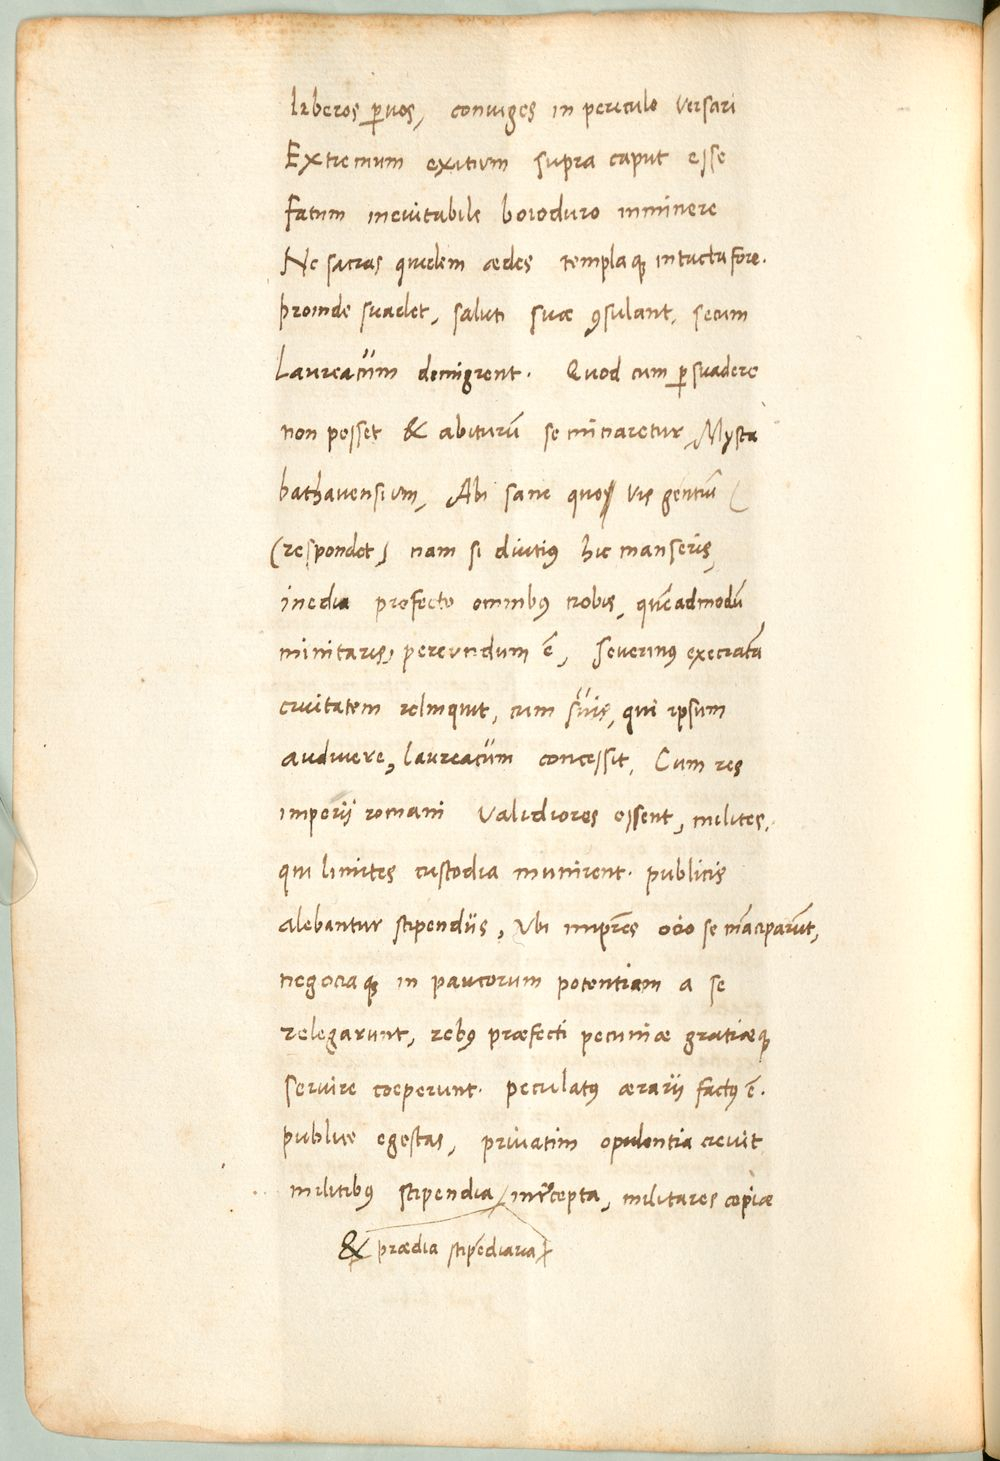 liberos ꝑuos, coniuges in periculo versari
Extremum exitium supra caput esse
fatum ineuitabile boioduro imminere
Ne sacras quidem ædes templaqꝫ intacta fore.
proinde suadet, saluti suæ ꝯsulant, secum
Laureacũm demigrent. Quod cum ꝑsuadere
non posset & abiturũ se minaretur, Mysta
bathauensium, Abi sane quo vis gentiũ
(respondet) nam si diutiꝰ hic manseris,
inedia profecto omnibꝰ nobis, quẽadmodũ
minitaris, pereundum ẽ, Seuerinꝰ execratã
ciuitatem relinquit, cum suis, qui ipsum
audiuere, laureacũm concessit. Cum res
imperii romani Validiores essent, milites,
qui limites custodia munirent. publicis
alebantur stipendiis, Vbi impr̃es ocio se mãciparũt,
negociaqꝫ in paucorum potentiam a se
relegarunt, rebꝰ præfecti pecuniæ gratiæqꝫ
seruire coeperunt. peculatꝰ ærarii factꝰ ẽ.
publice egestas, priuatim opulentia creuit
militibꝰ stipendia intercepta, militares copiæ
& prædia stipẽdiaria